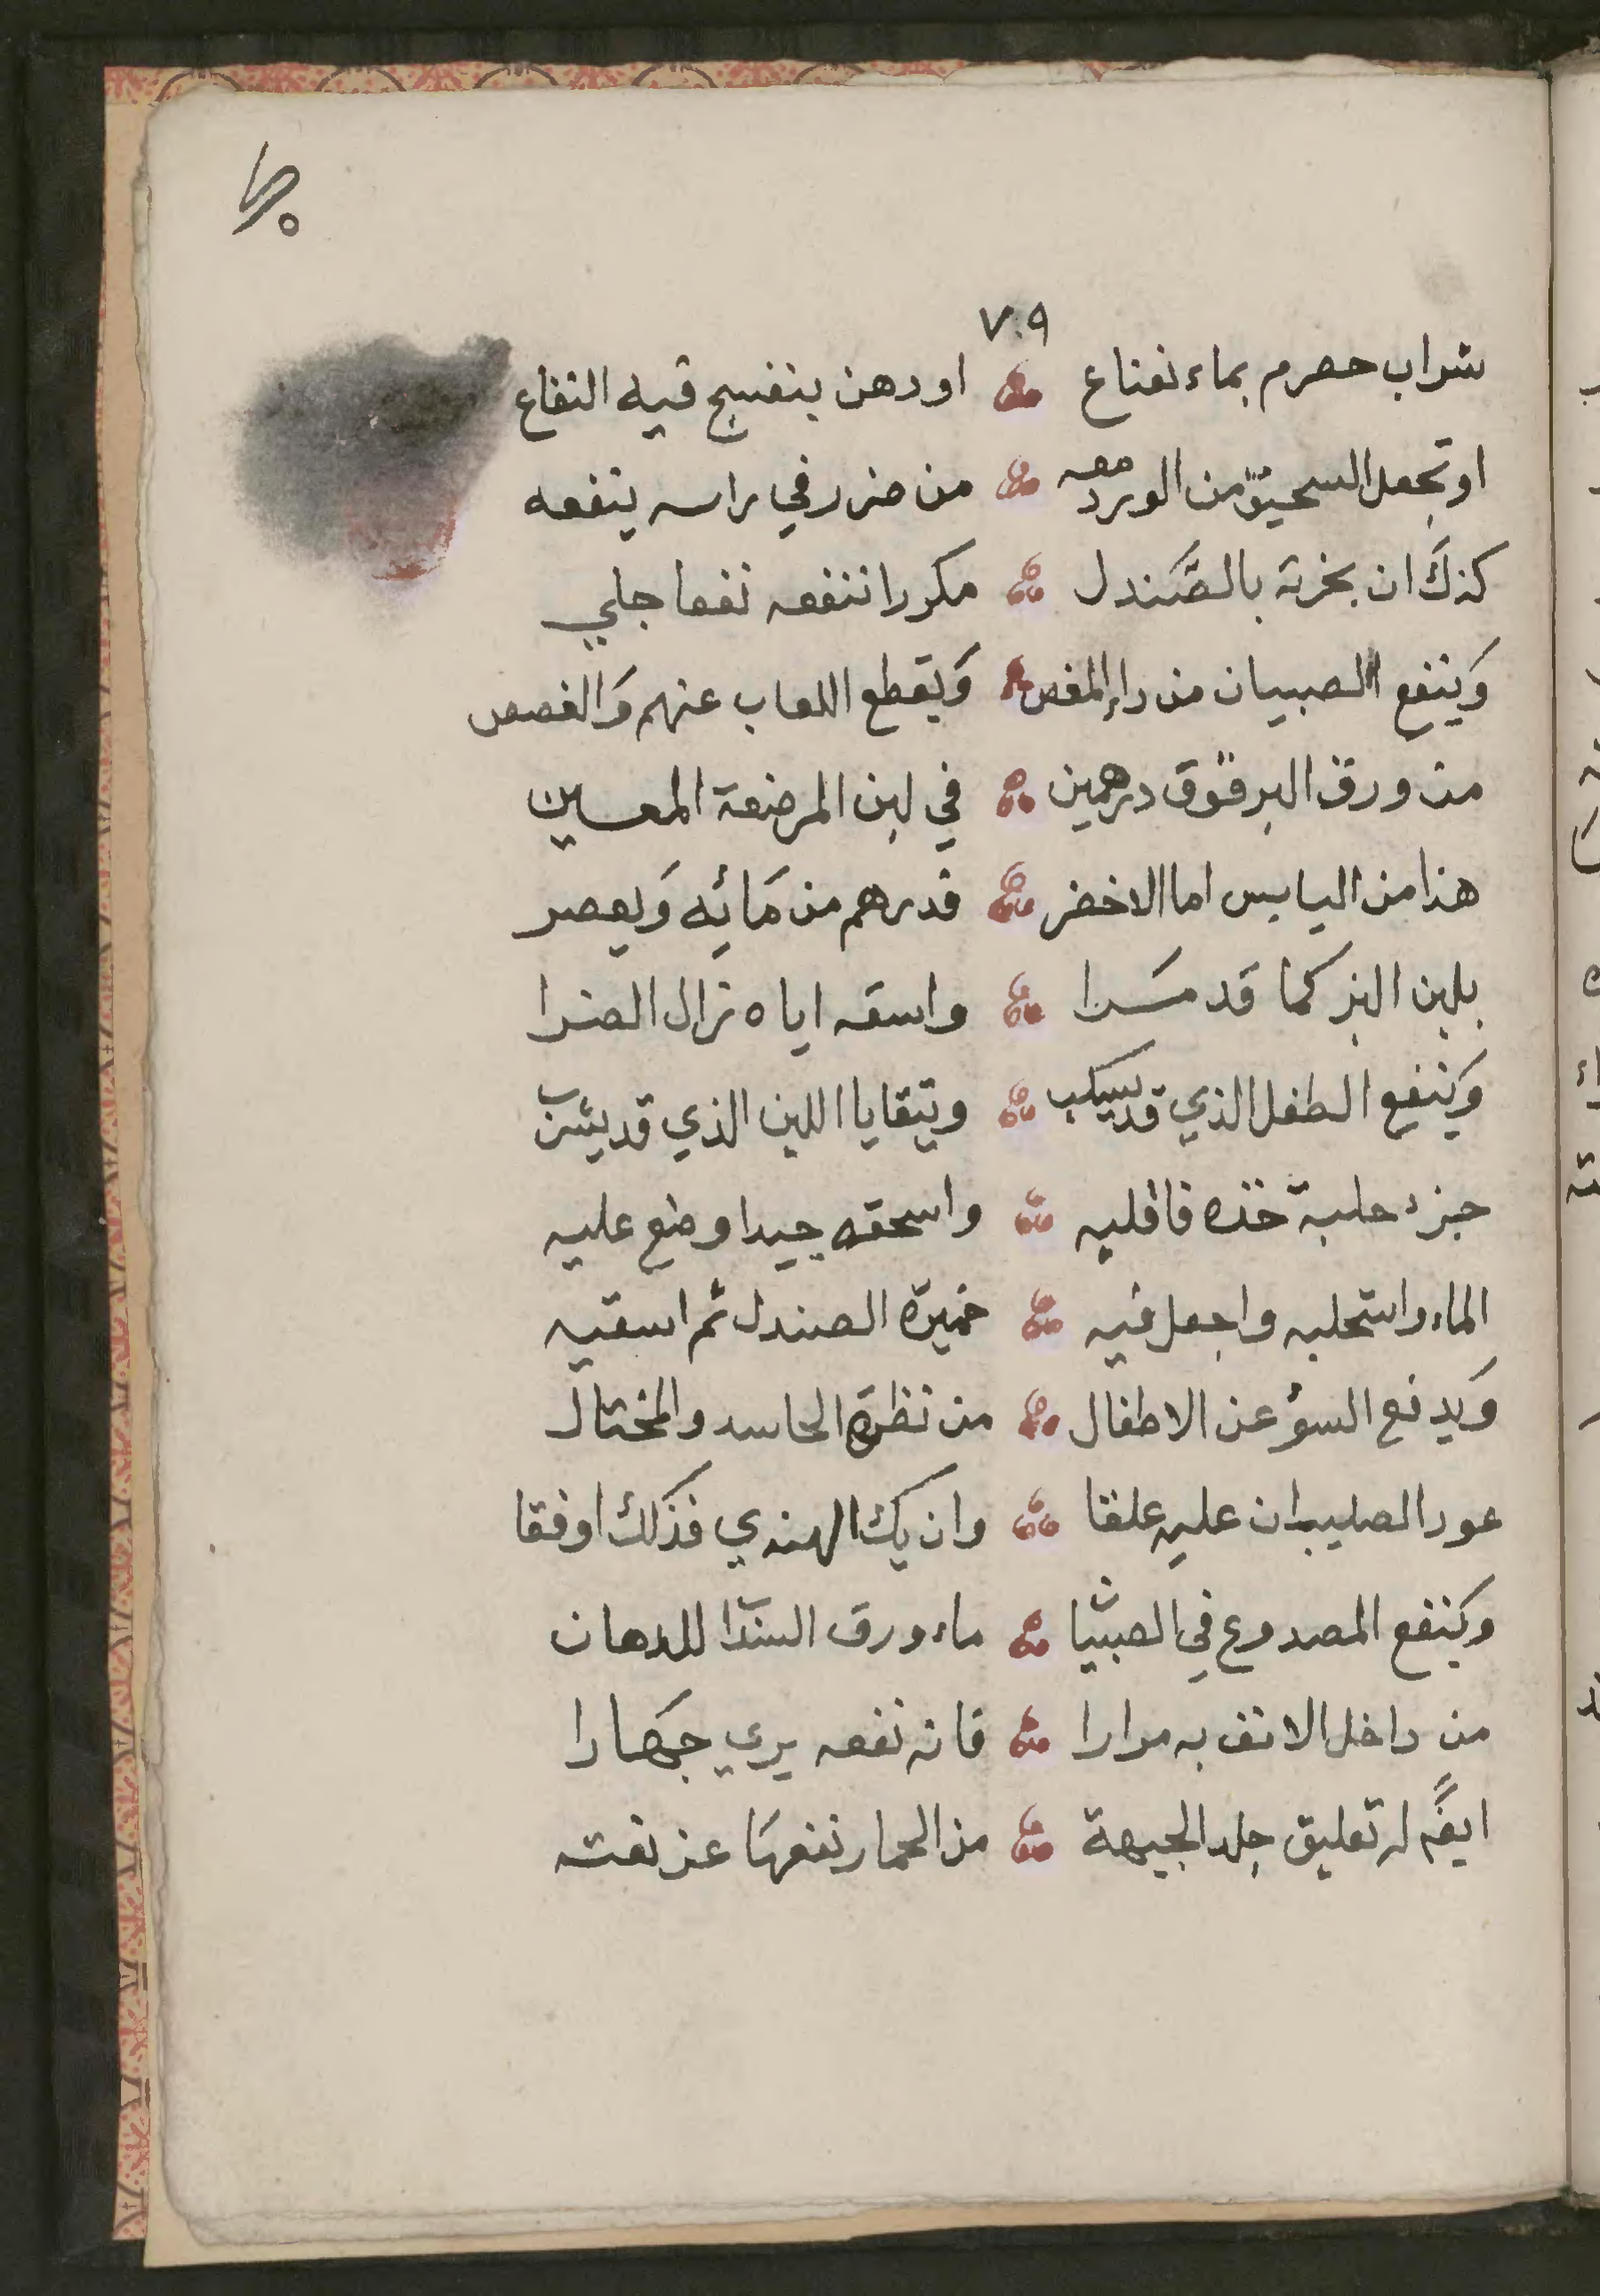 ٧٠٩
شراب حصرم بماء نعناع اودهن بنفسج فيه النفاع
او تجعل السحيق من الورد معه من ضرر في راسه ينفعه
كذلك ان بخرته بالصندل مكررا تنفعه نفعا جلي
وينفع الصبيان من داء المغص ويقطع اللعاب عنهم والغصص
من ورق البرقوق درهمين في لبن المرضعة المعسلين
هذا من اليابس اما الاخضر فدرهم من مائه ويعصر
بلبن البز كما قد مسرا واسقه اياه تزال الضرا
وينفع الطفل الذي قد يسكب ويتقايا اللبن الذي قد يشرب
جزء حلبة خذه فاقليه واسحقه جيدا وضع عليه
الماء واستحلبه واجعل فيه خميرة الصندل ثم اسقيه
ويدفع السؤ عن الاطفال من نظرة الحاسد والمختال
عود الصليب ان عليه علقا وان يك الهندي فذلك اوفقا
وينفع المصدوع في الصبيان ماء ورق السندا للدهان
من داخل الانف به مرارا فانه نفعه يري جهارا
ايضا له تعليق جلد الجبهة من الحمار نفعها عن نعته